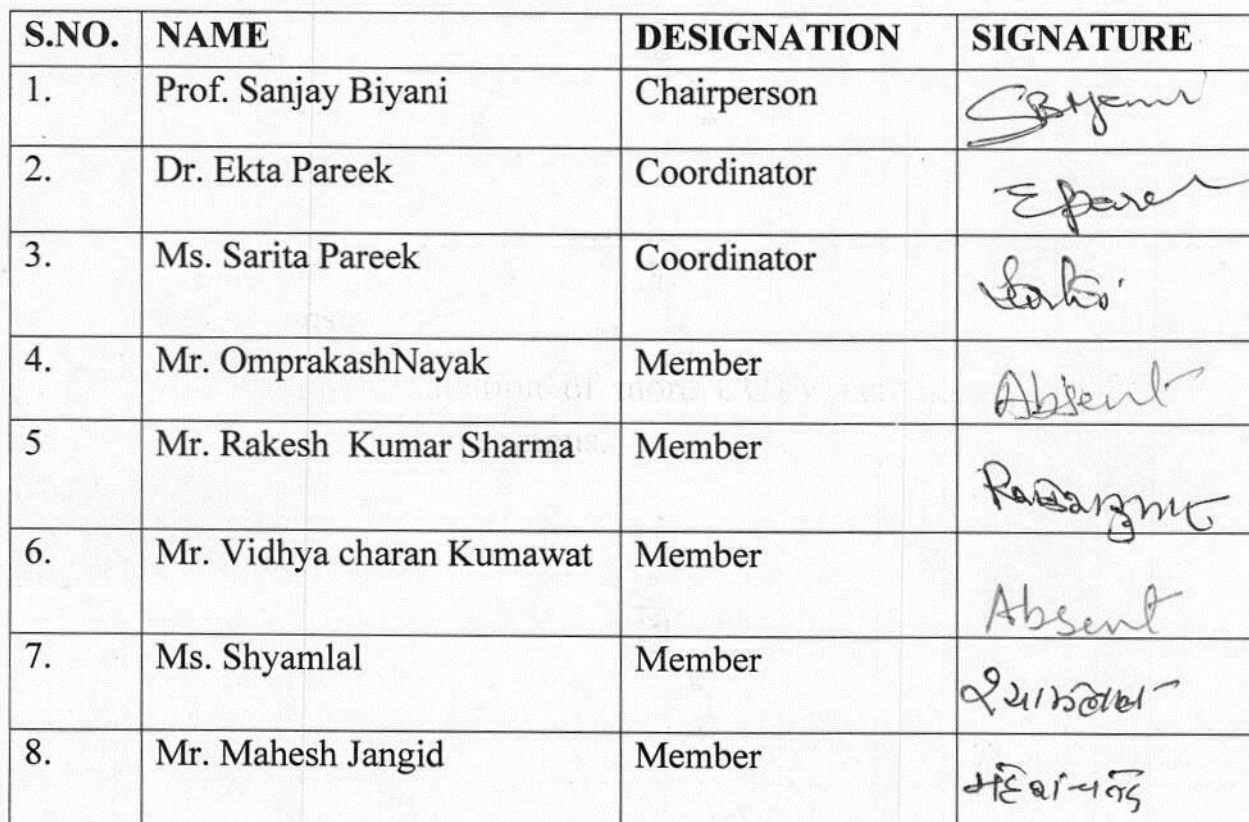 S.NO. NAME DESIGNATION SIGNATURE
1. Prof. Sanjay Biyani Chairperson SBiyani
2. Dr. Ekta Pareek Coordinator EPareek
3. Ms. Sarita Pareek Coordinator
4. Mr. OmprakashNayak Member Absent
5 Mr. Rakesh Kumar Sharma Member
6. Mr. Vidhya charan Kumawat Member Absent
7. Ms. Shyamlal Member श्यामलाल
8. Mr. Mahesh Jangid Member महेश चन्द